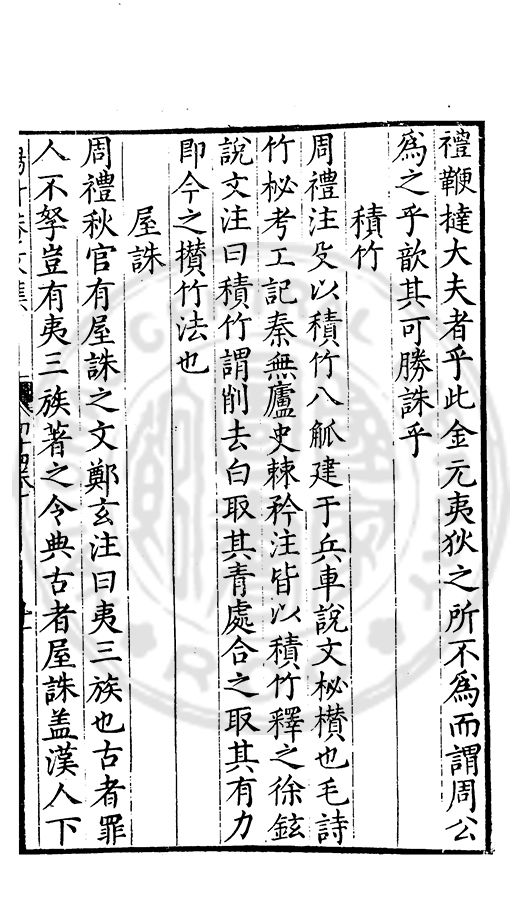 禮鞭撻大夫者乎此金元夷狄之所不爲而謂周公
爲之乎歆其可勝誅乎
積竹
周禮注殳以積竹八觚建于兵車說文柲欑也毛詩
竹柲考工記秦無廬史棘矜注皆以積竹釋之徐鉉
說文注曰積竹謂削去白取其青處合之取其有力
即今之欑竹法也
屋誅
周禮秋官有屋誅之文鄭玄注曰夷三族也古者罪
人不孥豈有夷三族著之令典古者屋誅盖漢人下